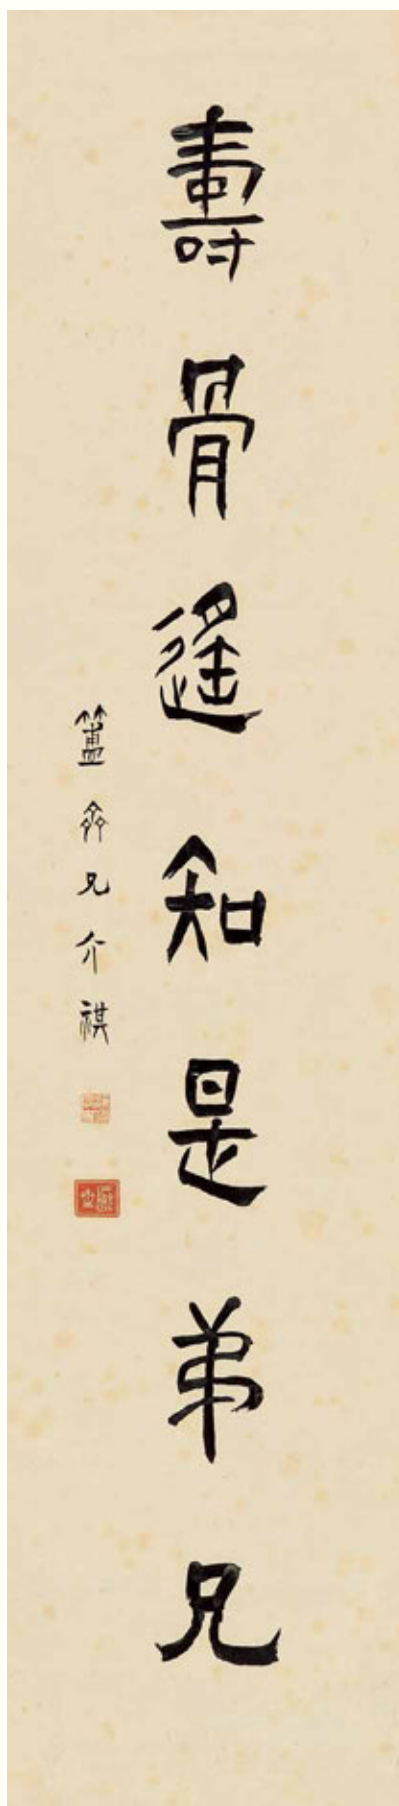 壽骨遙知是弟兄
簠齋兄介祺